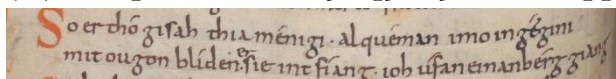 So er tho gisah thia ménigi · al quéman imo in gégini
mit ougon blíden er sie intfiang · ioh uf an einan bérg giang